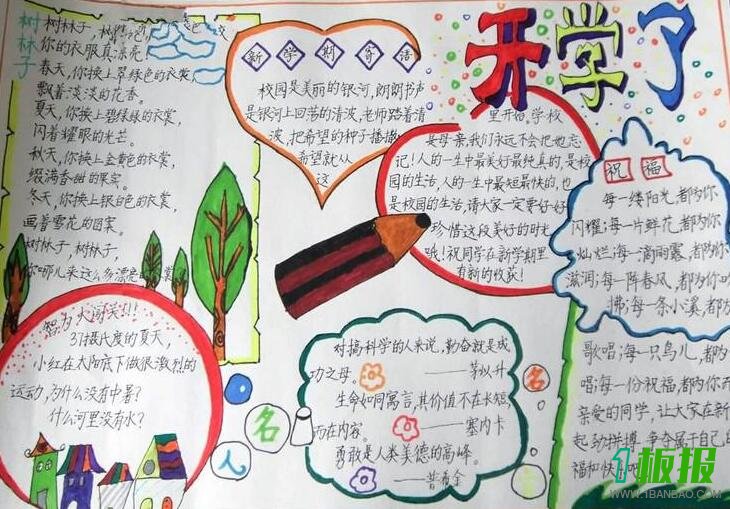 开学了
树林子
树林子,树林子,
你的衣服真漂亮!
春天,你换上翠绿色的衣裳,
飘着淡淡的花香。
夏天,你换上碧绿绿的衣裳,
闪着耀眼的光芒。
秋天,你换上金黄色的衣裳,
缀满香甜的果实。
冬天,你换上银白色的衣裳,
画着雪花的图案。
树林子,树林子,
你哪儿来这么多漂亮
新学期寄语
校园是美丽的银河,朗朗书声
是银河上回荡的清波,老师踏着清
波,把希望的种子播撒
希望就从
这
里开始,学校
是母亲,我们永远不会把她忘
记!人的一生中最美好最纯真的,是校
园的生活,人的一生中最短最快的,也
是校园的生活,请大家一定要好好
珍惜这段美好的时光
哦!祝同学在新学期里
有新的收获!
祝福
每一缕阳光,都为你
闪耀;每一片鲜花,都为你
灿烂;每一滴雨露,都为你
滋润;每一阵春风,都为你吹
拂;每一条小溪,都为
歌唱;每一只鸟儿,都为
唱;每一份祝福,都为你而
亲爱的同学,让大家在新
起动拼搏,争夺属于自己
福和快
37摄氏度的夏天,
小红在太阳底下做很激烈的
运动,为什么没有中暑?
什么河里没有水?
名人名言
对搞科学的人来说,勤奋就是成
功之母。
——茅以升
生命如同寓言,其价值不在长短,
而在内容。
——塞内卡
勇敢是人类美德的高峰。
——普希金
1板报
WWW.1BANBAO.COM